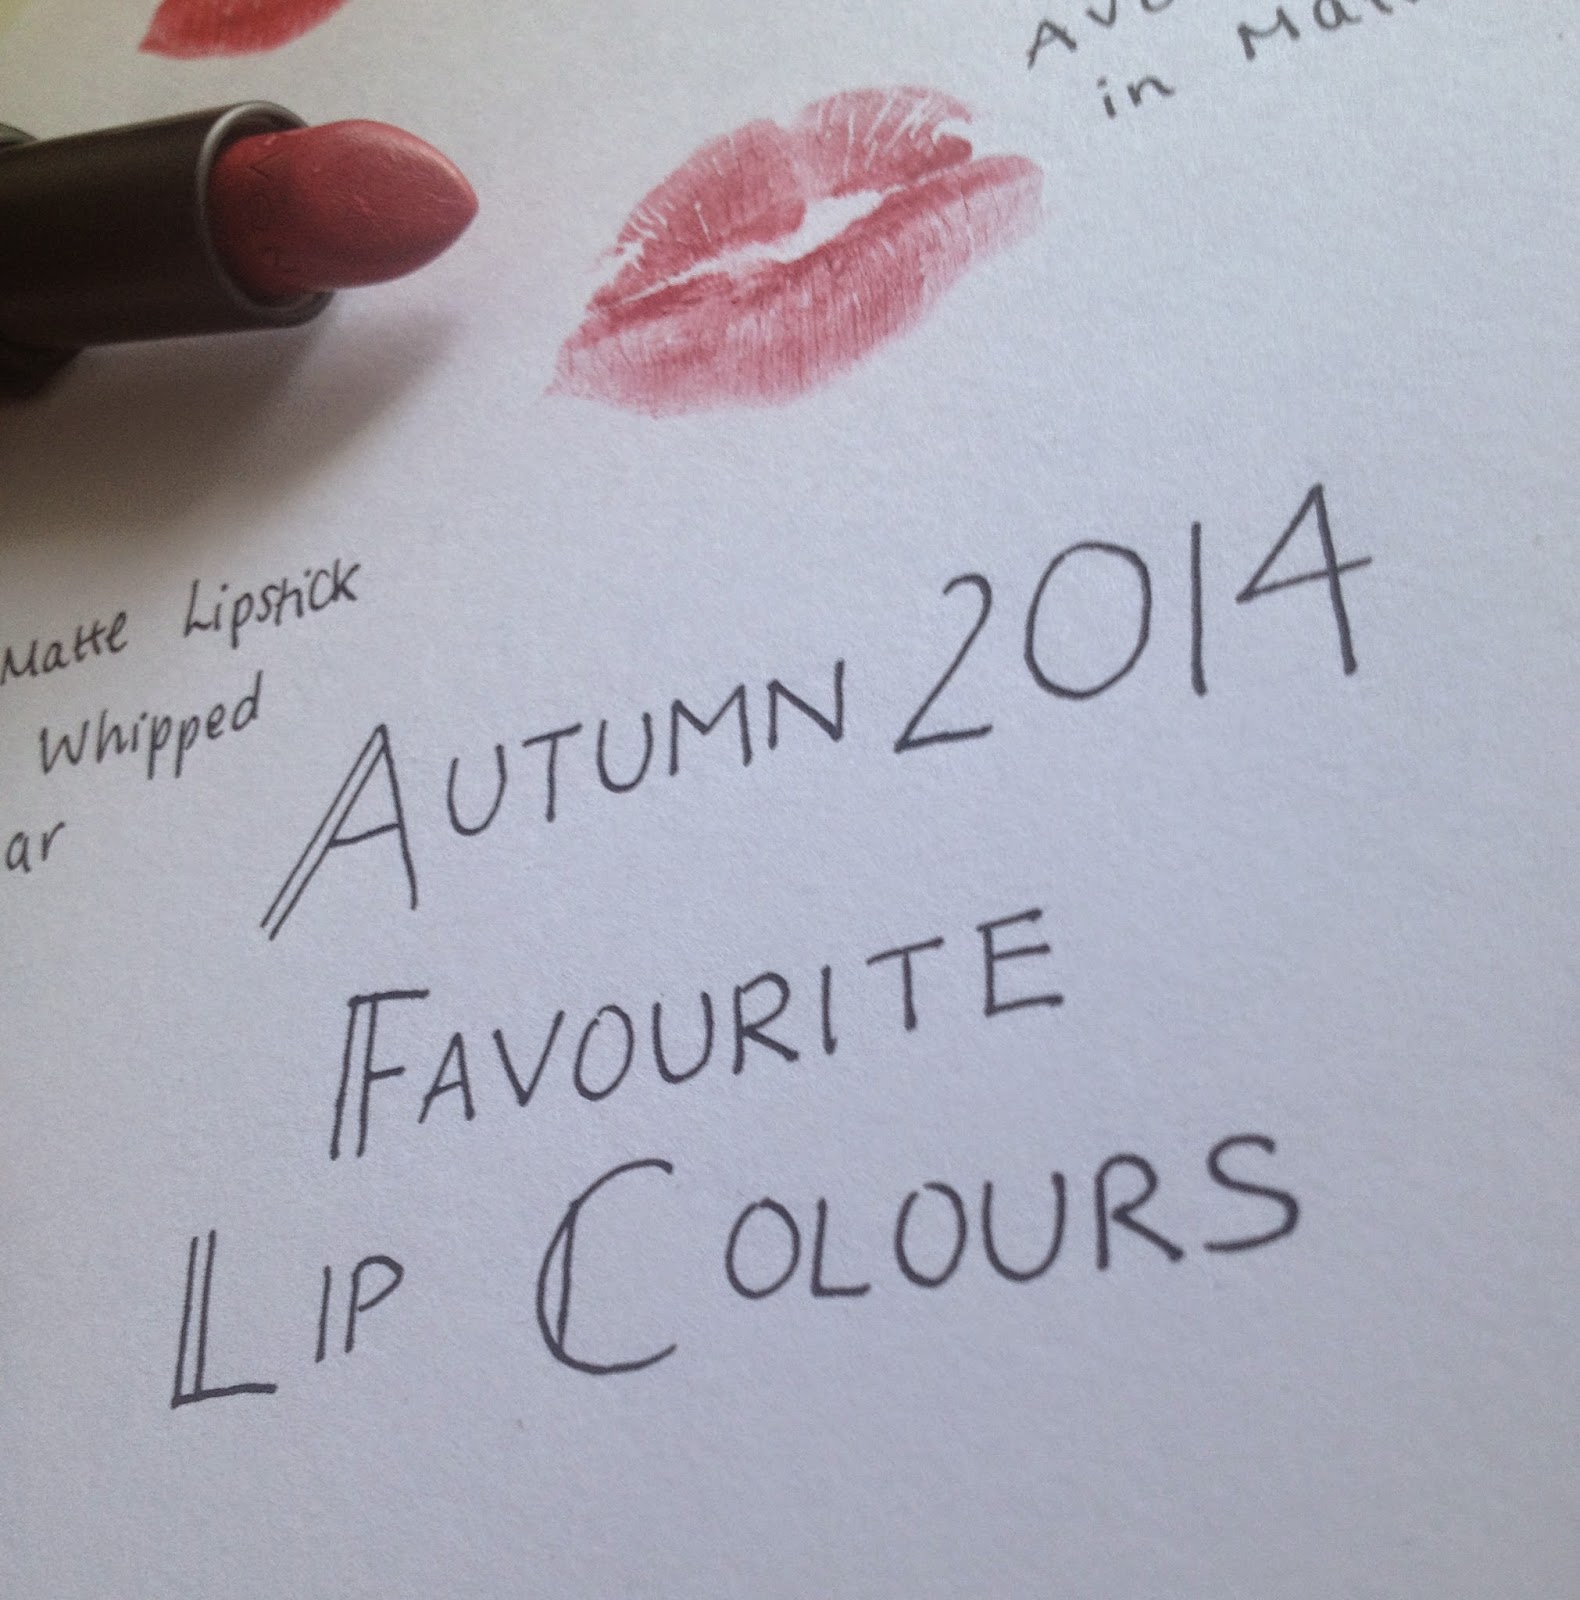 in
Matte Lipstick
Whipped
ar
AUTUMN 2014
FAVOURITE
LIP COLOURS